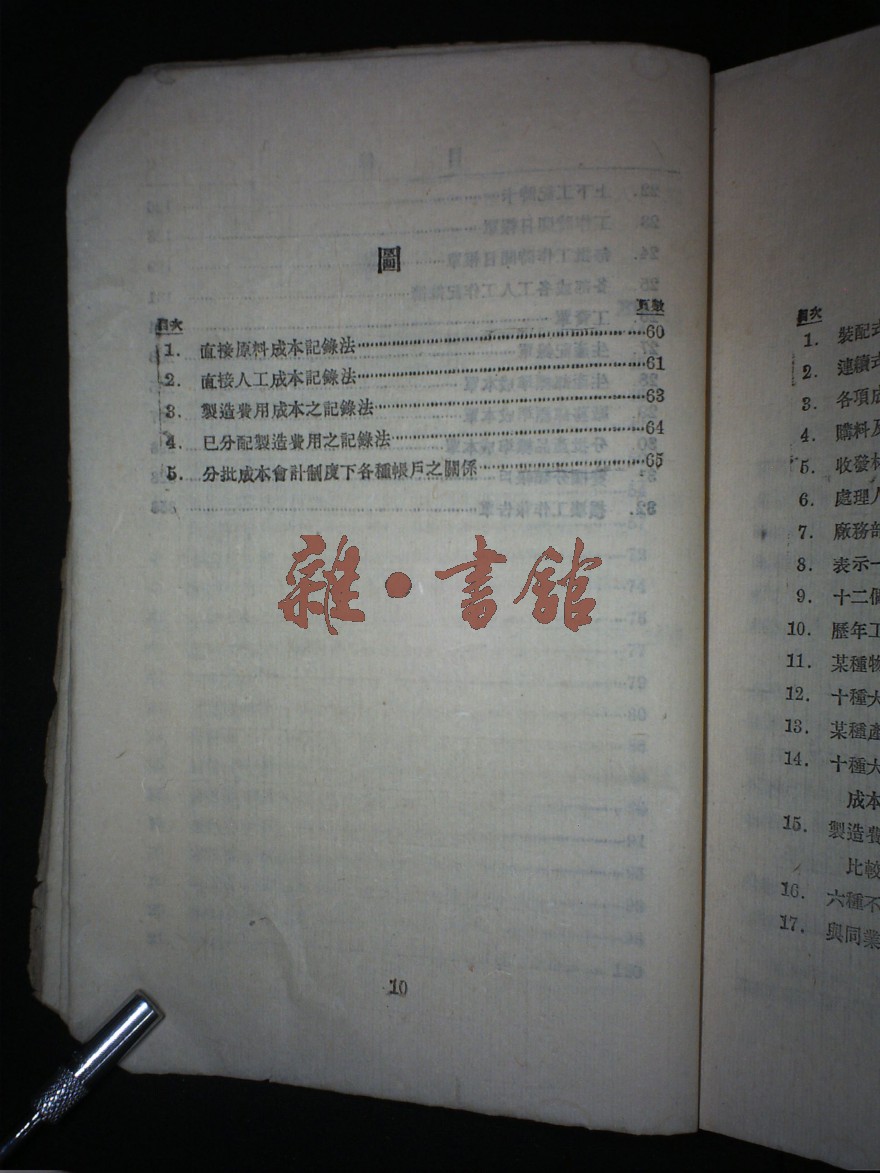 圖
圖次 頁數
1. 直接原料成本記錄法 60
2. 直接人工成本記錄法 61
3. 製造費用成本之記錄法 63
4. 已分配製造費用之記錄法 64
5. 分批成本會計制度下各種帳戶之關係 65
雜·書館
10
圖次
1. 裝配式
2. 連續式
3. 各項成
4. 購料及
5. 收發材
6. 處理人
7. 廠務部
8. 表示一
9. 十二個
10. 歷年工
11. 某種物
12. 十種大
13. 某種產
14. 十種大
成本
15. 製造費
比較
16. 六種不
17. 與同業